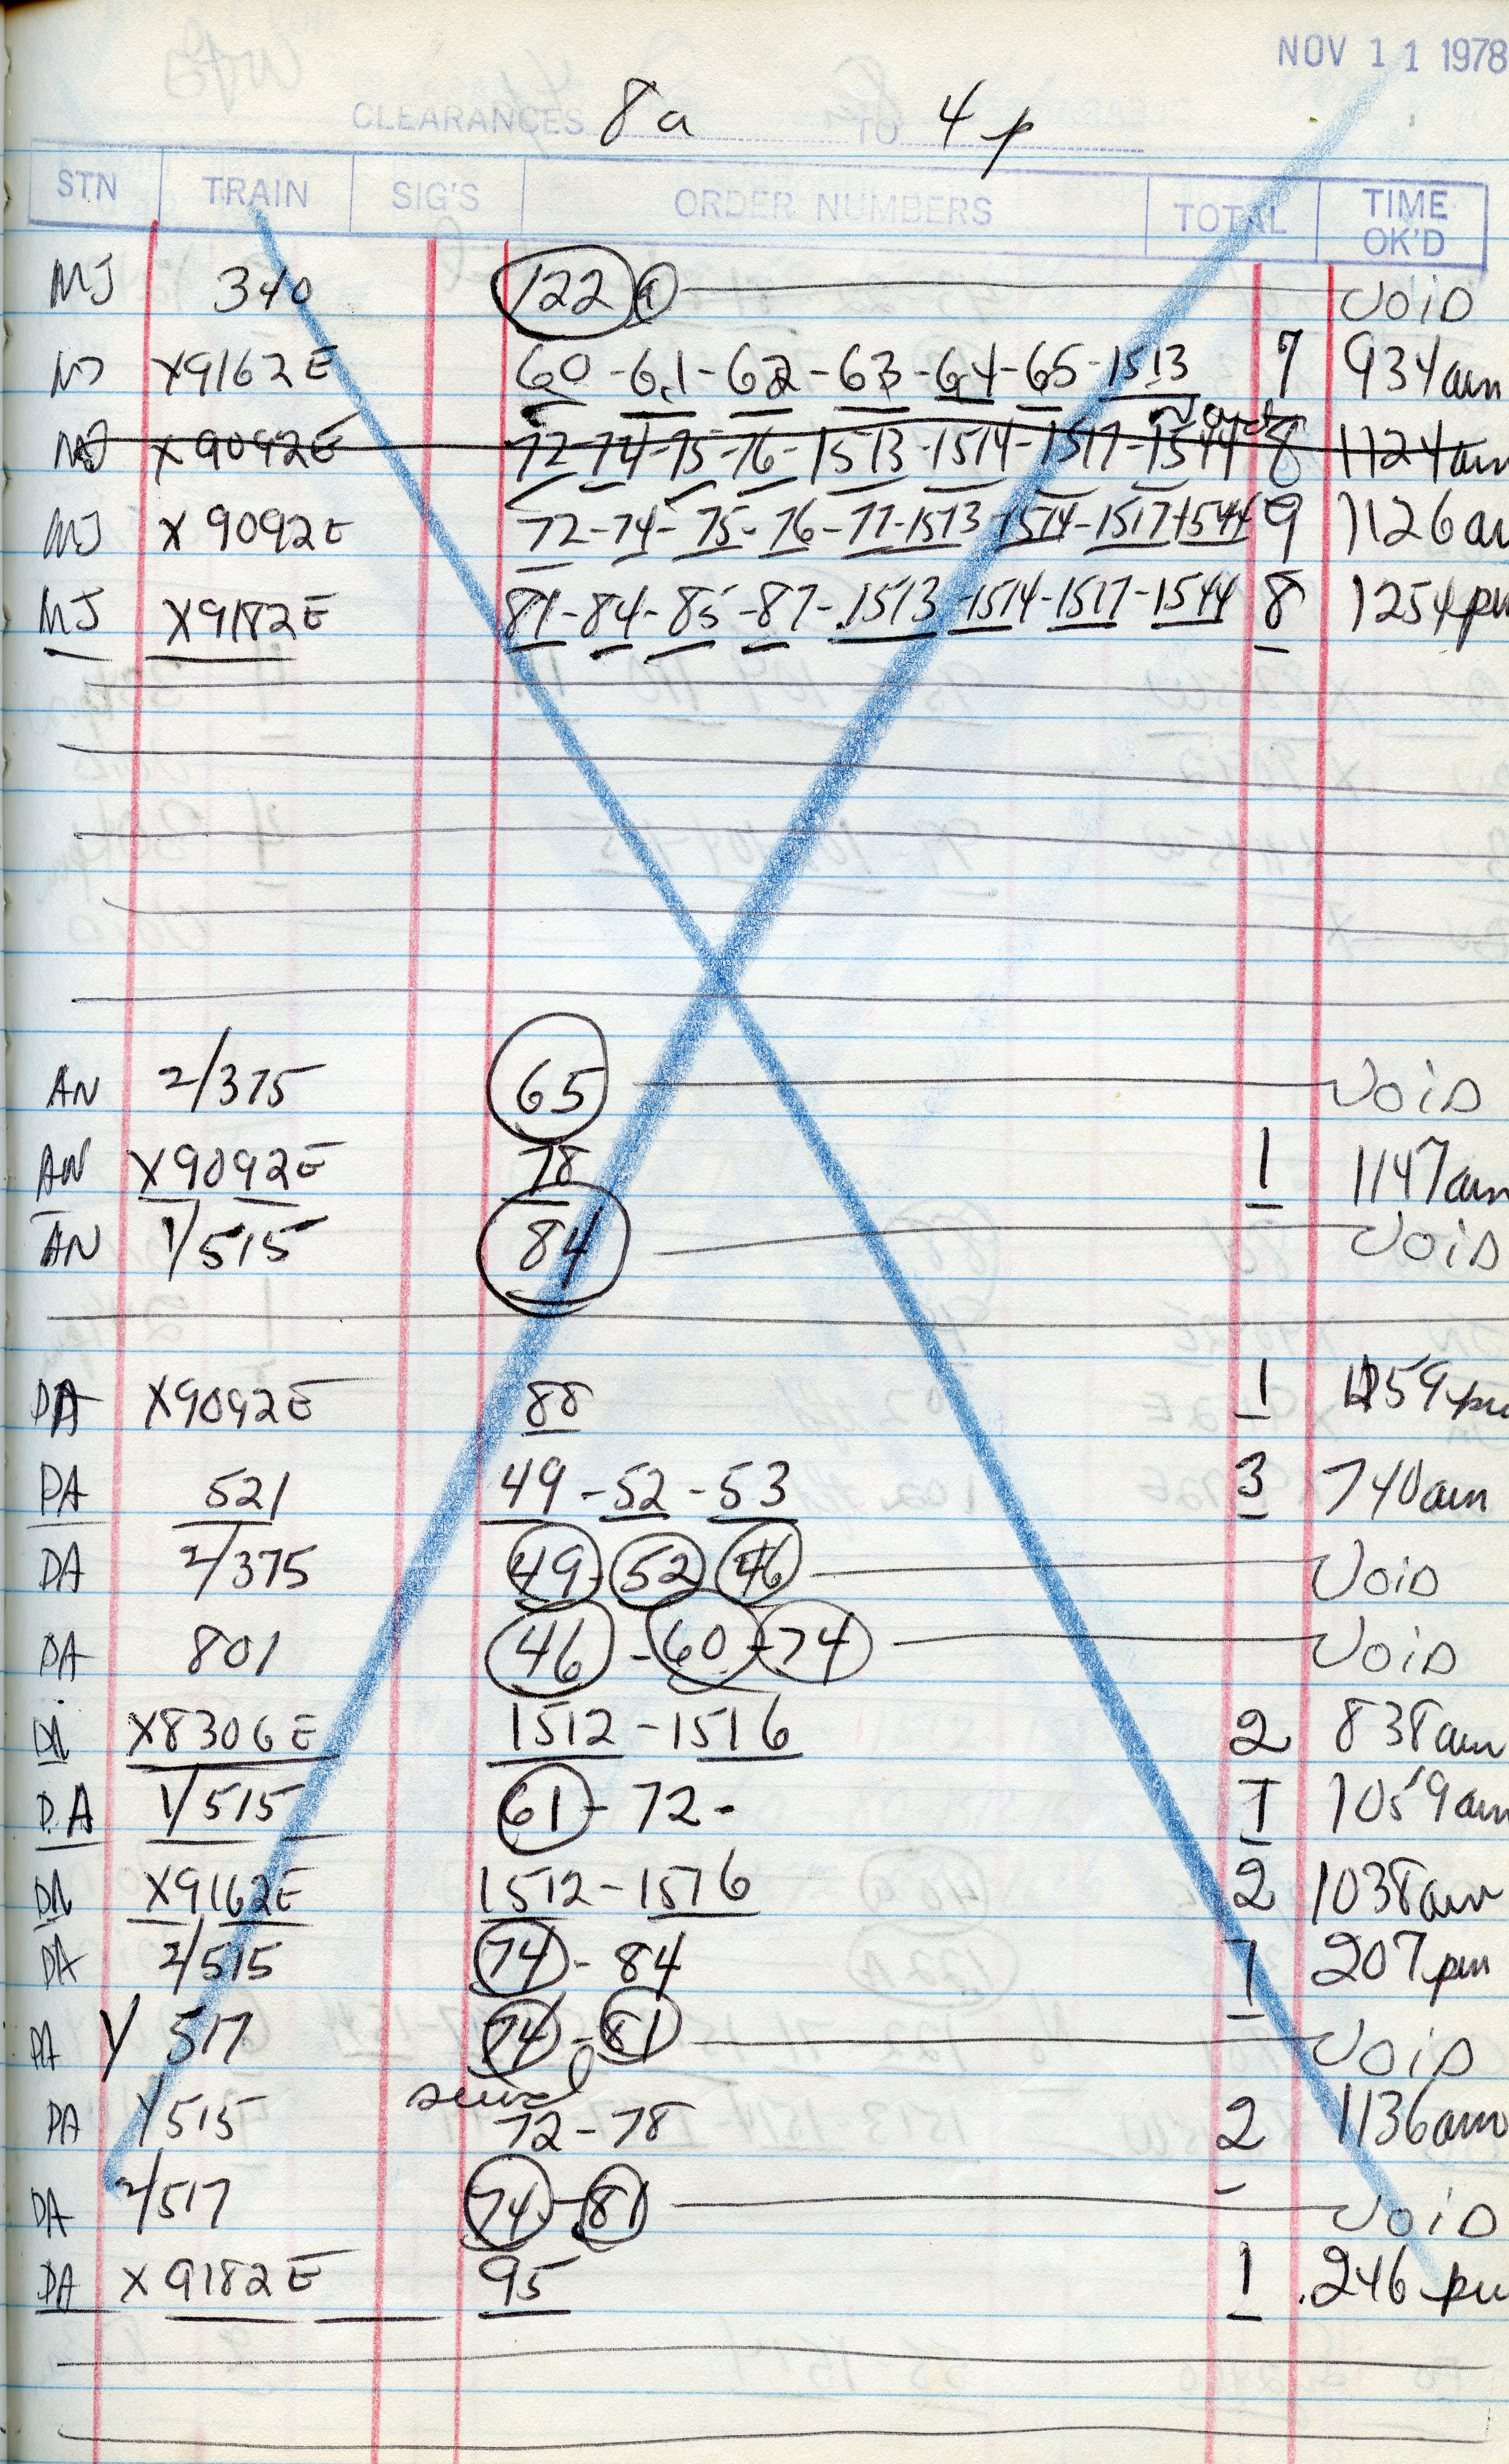 NOV 11 1978
CLEARANCES 8a TO 4p
STN TRAIN SIG'S ORDER NUMBERS TOTAL TIME OK'D
MJ 340 122 a VOID
MJ X9162E 60-61-62-63-64-65-1513 7 934am
MJ X9092E 72-74-75-76-1513-1514-1517-1544 8 1124am
MJ X9092E 72-74-75-76-77-1513-1514-1517-1544 9 1126am
MJ X9182E 81-84-85-87-1513-1514-1517-1544 8 1254pm
AN 2/375 65 VOID
AN X9092E 78 1 1147am
AN 1/515 84 VOID
DA X9092E 88 1 1259pm
DA 521 49-52-53 3 740am
DA 2/375 49-52-46 VOID
DA 801 46-60-74 VOID
DA X8306E 1512-1516 2 838am
DA 1/515 61-72- 1 1059am
DA X9162E 1512-1516 2 1038am
DA 2/515 74-84 1 207pm
DA 1/517 74-81 VOID
DA 1/515 72-78 2 1136am
DA 2/517 74-81 VOID
DA X9182E 95 1 246pm